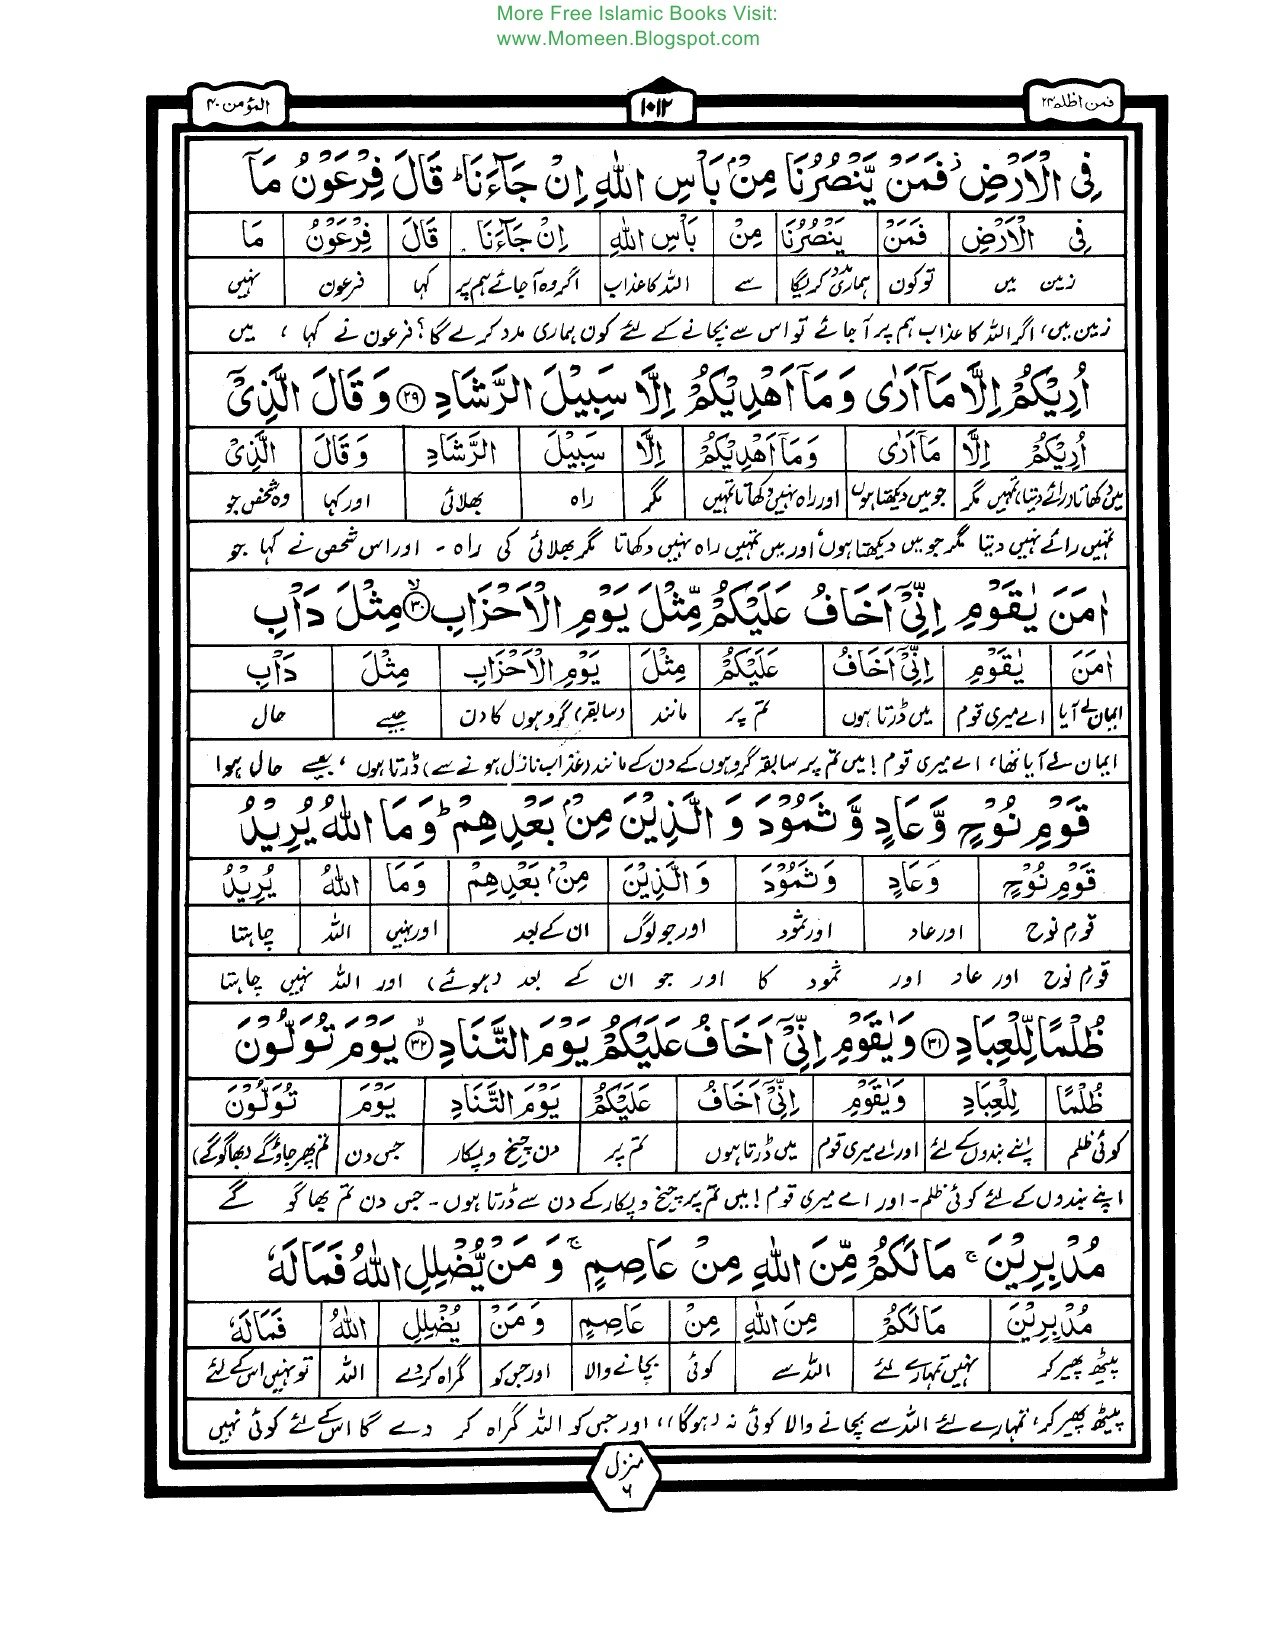 More Free Islamic Books Visit:
www.Momeen.Blogspot.com
فمن اظلم ۲۴ ۱۰۱۲ المؤمن ۴۰
فِى الْاَرْضِ فَمَنْ يَّنْصُرُنَا مِنْۢ بَاْسِ اللّٰهِ اِنْ جَآءَنَا ؕ قَالَ فِرْعَوْنُ مَاۤ
فِى الْاَرْضِ فَمَنْ يَنْصُرُنَا مِنْ بَاْسِ اللّٰهِ اِنْ جَآءَنَا قَالَ فِرْعَوْنُ مَا
زمین میں تو کون ہماری مدد کریگا سے اللہ کا عذاب اگر وہ آجائے ہم پر کہا فرعون نہیں
زمین میں، اگر اللہ کا عذاب ہم پر آجائے تو اس سے بچانے کے لئے کون ہماری مدد کرے گا؟ فرعون نے کہا، میں
اُرِيْكُمْ اِلَّا مَاۤ اَرٰى وَمَاۤ اَهْدِيْكُمْ اِلَّا سَبِيْلَ الرَّشَادِ ۲۹ وَقَالَ الَّذِىْۤ
اُرِيْكُمْ اِلَّا مَاۤ اَرٰى وَمَاۤ اَهْدِيْكُمْ اِلَّا سَبِيْلَ الرَّشَادِ وَقَالَ الَّذِىْ
میں دکھاتا (رائے دیتا) تمہیں مگر جو میں دیکھتا ہوں اور راہ نہیں دکھاتا تمہیں مگر راہ بھلائی اور کہا وہ شخص جو
تمہیں رائے نہیں دیتا مگر جو میں دیکھتا ہوں اور میں تمہیں راہ نہیں دکھاتا مگر بھلائی کی راہ - اور اس شخص نے کہا جو
اٰمَنَ يٰقَوْمِ اِنِّىْۤ اَخَافُ عَلَيْكُمْ مِّثْلَ يَوْمِ الْاَحْزَابِ ۳۰ مِثْلَ دَاْبِ
اٰمَنَ يٰقَوْمِ اِنِّىْۤ اَخَافُ عَلَيْكُمْ مِثْلَ يَوْمِ الْاَحْزَابِ مِثْلَ دَاْبِ
ایمان لے آیا اے میری قوم میں ڈرتا ہوں تم پر مانند (سابقہ) گروہوں کا دن جیسے حال
ایمان لے آیا تھا، اے میری قوم! میں تم پر سابقہ گروہوں کے دن کے مانند (عذاب نازل ہونے سے) ڈرتا ہوں، جیسے حال ہوا
قَوْمِ نُوْحٍ وَّعَادٍ وَّثَمُوْدَ وَالَّذِيْنَ مِنْۢ بَعْدِهِمْ ؕ وَمَا اللّٰهُ يُرِيْدُ
قَوْمِ نُوْحٍ وَعَادٍ وَثَمُوْدَ وَالَّذِيْنَ مِنْۢ بَعْدِهِمْ وَمَا اللّٰهُ يُرِيْدُ
قوم نوح اور عاد اور ثمود اور جو لوگ ان کے بعد اور نہیں اللہ چاہتا
قوم نوح اور عاد اور ثمود کا اور جو ان کے بعد (ہوئے) اور اللہ نہیں چاہتا
ظُلْمًا لِّلْعِبَادِ ۳۱ وَيٰقَوْمِ اِنِّىْۤ اَخَافُ عَلَيْكُمْ يَوْمَ التَّنَادِ ۳۲ يَوْمَ تُوَلُّوْنَ
ظُلْمًا لِلْعِبَادِ وَيٰقَوْمِ اِنِّىْۤ اَخَافُ عَلَيْكُمْ يَوْمَ التَّنَادِ يَوْمَ تُوَلُّوْنَ
کوئی ظلم اپنے بندوں کے لئے اور اے میری قوم میں ڈرتا ہوں تم پر دن چیخ و پکار جس دن تم پھر جاؤگے (بھاگوگے)
اپنے بندوں کے لئے کوئی ظلم - اور اے میری قوم! میں تم پر چیخ و پکار کے دن سے ڈرتا ہوں - جس دن تم بھاگو گے
مُدْبِرِيْنَ ۚ مَا لَكُمْ مِّنَ اللّٰهِ مِنْ عَاصِمٍ ۚ وَمَنْ يُّضْلِلِ اللّٰهُ فَمَا لَهٗ
مُدْبِرِيْنَ مَا لَكُمْ مِنَ اللّٰهِ مِنْ عَاصِمٍ وَمَنْ يُضْلِلِ اللّٰهُ فَمَا لَهٗ
پیٹھ پھیر کر نہیں تمہارے لئے اللہ سے کوئی بچانے والا اور جس کو گمراہ کردے اللہ تو نہیں اس کے لئے
پیٹھ پھیر کر، تمہارے لئے اللہ سے بچانے والا کوئی نہ (ہوگا)، اور جس کو اللہ گمراہ کر دے گا اس کے لئے کوئی نہیں
منزل ۶